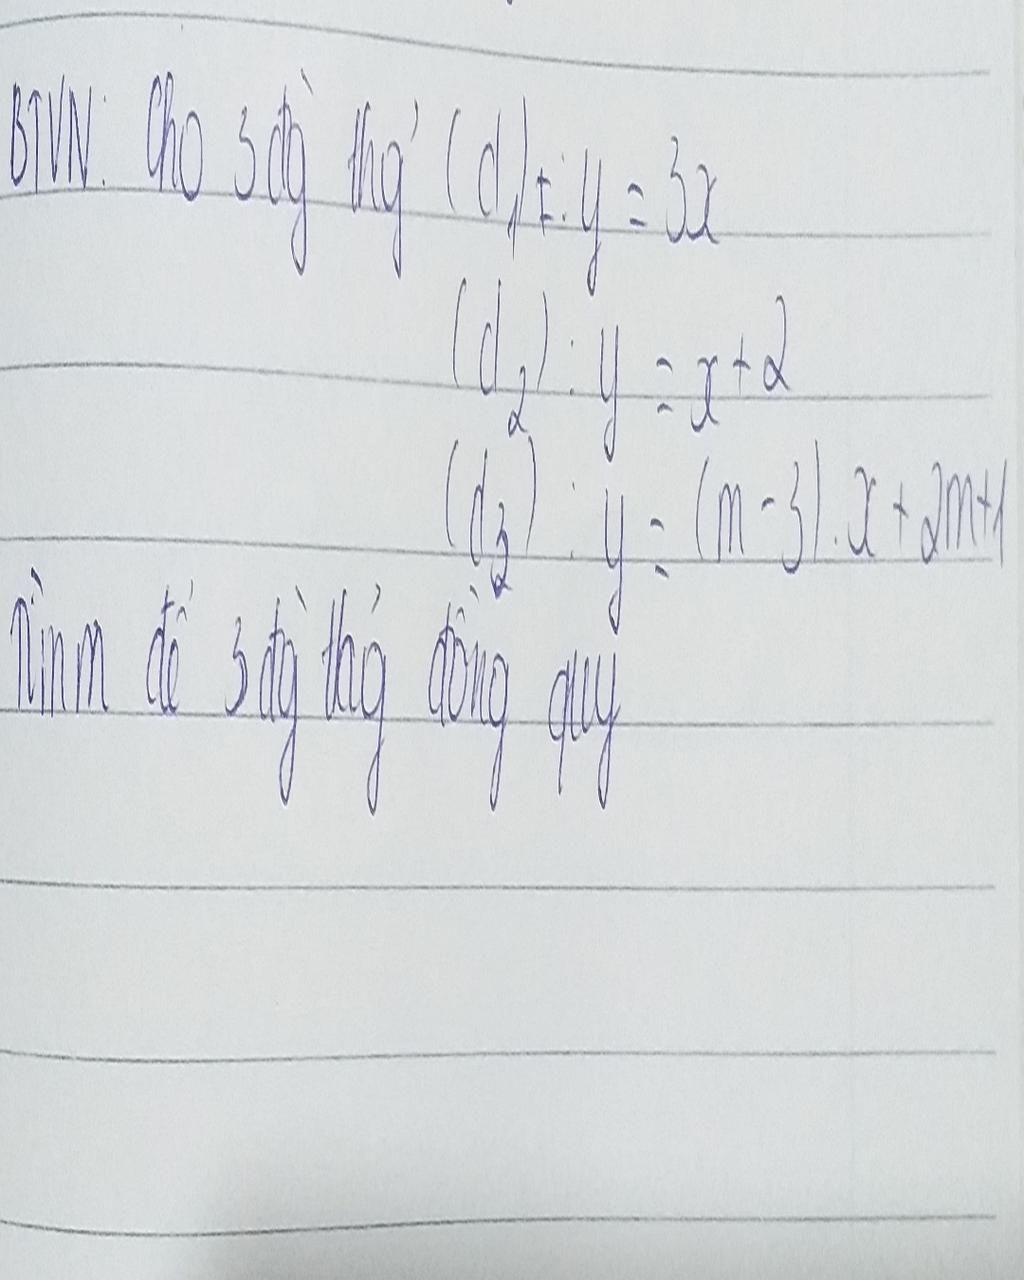 BTVN: Cho 3 đg̀ thg̉ (d1): y = 3x
(d2): y = x + 2
(d3): y = (m - 3).x + 2m+1
Tìm m để 3 đg̀ thg̉ đồng quy